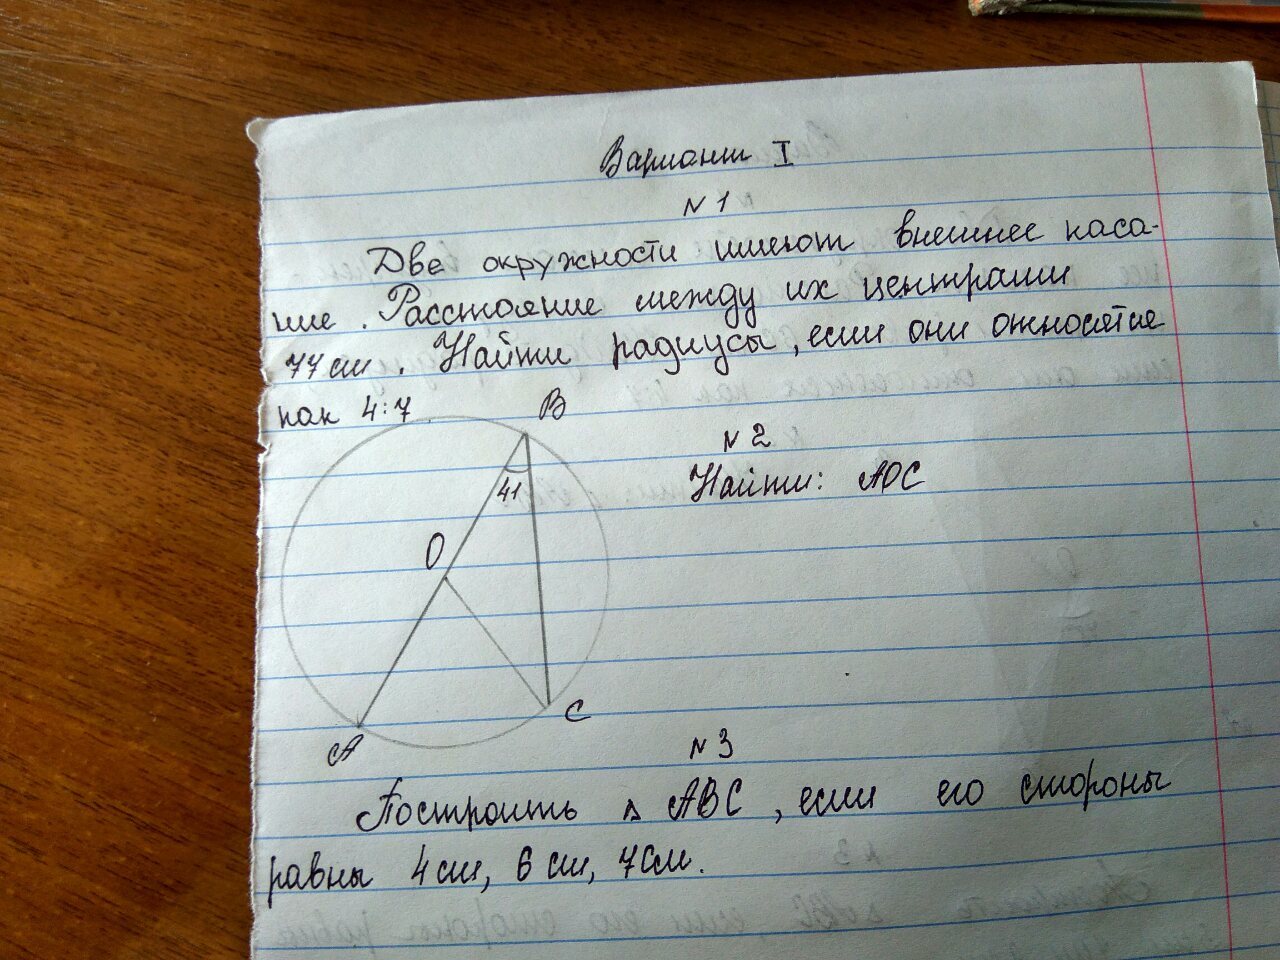 Вариант I
N 1
Две окружности имеют внешнее каса-
ние. Расстояние между их центрами
77 см. Найти радиусы, если они относятся
как 4:7.
B
N 2
41
Найти: AOC
O
C
A
N 3
Построить △ ABC, если его стороны
равны 4 см, 6 см, 7 см.